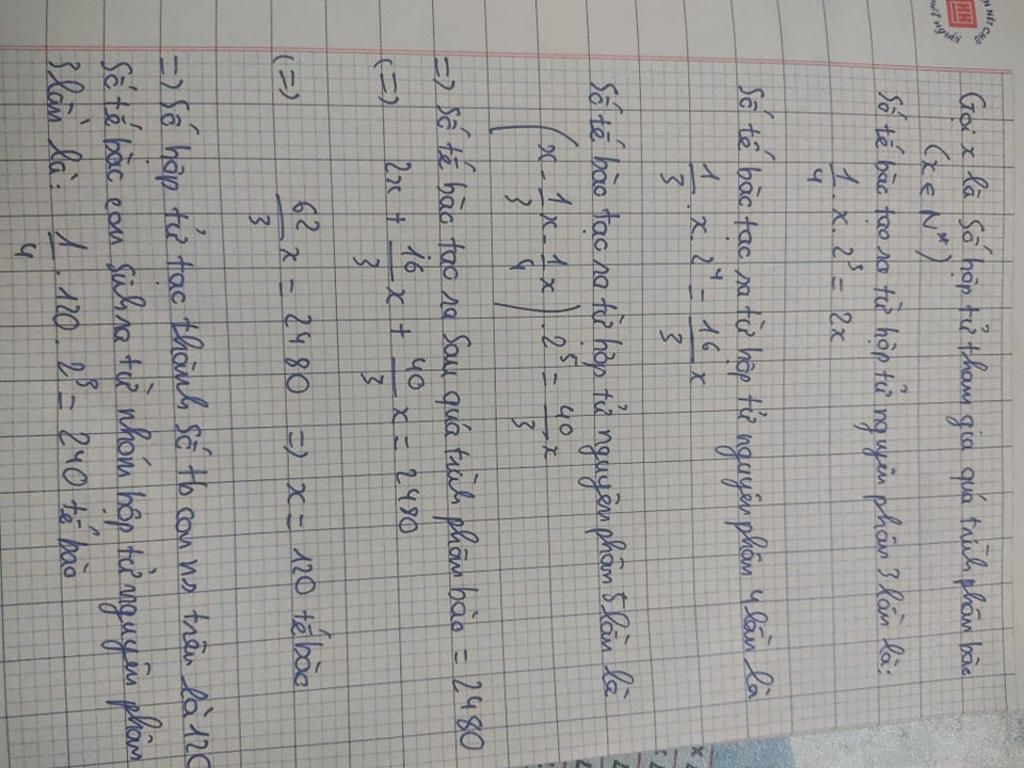 Gọi x là số hợp tử tham gia quá trình phân bào
(x ∈ N*)
Số tế bào tạo ra từ hợp tử nguyên phân 3 lần là:
1/4 . x . 2³ = 2x
Số tế bào tạo ra từ hợp tử nguyên phân 4 lần là
1/3 . x . 2⁴ = 16/3 x
Số tế bào tạo ra từ hợp tử nguyên phân 5 lần là
(x - 1/3 x - 1/4 x) . 2⁵ = 40/3 x
=> Số tế bào tạo ra sau quá trình phân bào = 2480
(=) 2x + 16/3 x + 40/3 x = 2480
(=) 62/3 x = 2480 => x = 120 tế bào
=> Số hợp tử tạo thành số tb con n» trên là 120
Số tế bào con sinh ra từ nhóm hợp tử nguyên phân
3 lần là: 1/4 . 120 . 2³ = 240 tế bào